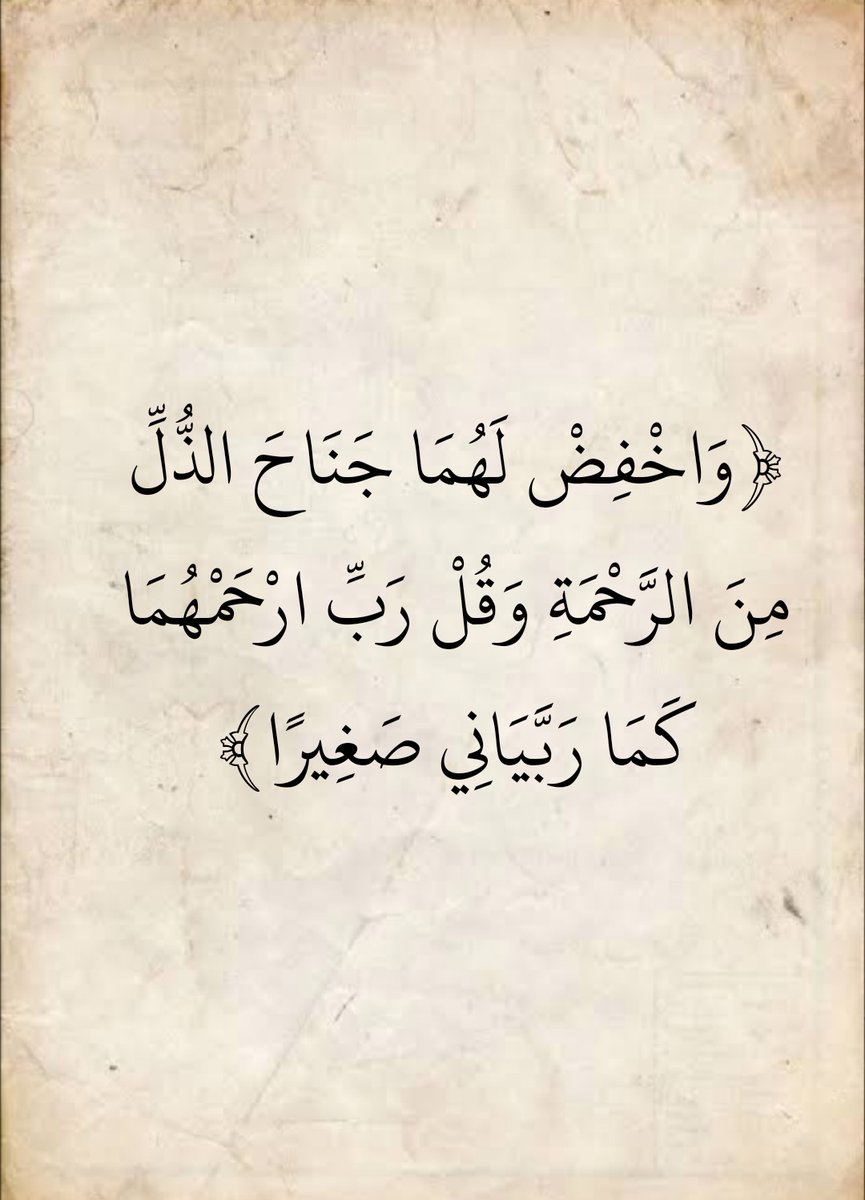 ﴿وَاخْفِضْ لَهُمَا جَنَاحَ الذُّلِّ
مِنَ الرَّحْمَةِ وَقُلْ رَبِّ ارْحَمْهُمَا
كَمَا رَبَّيَانِي صَغِيرًا﴾